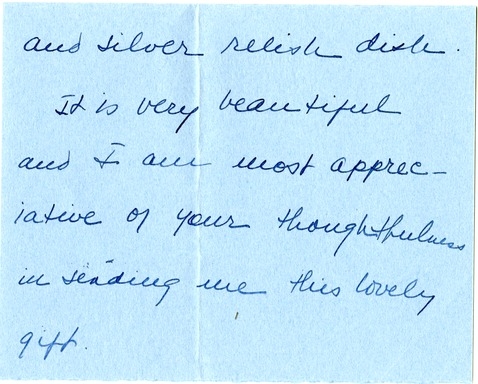 and silver relish dish.
It is very beautiful
and I am most apprec-
iative of your thoughtfulness
in sending me this lovely
gift.